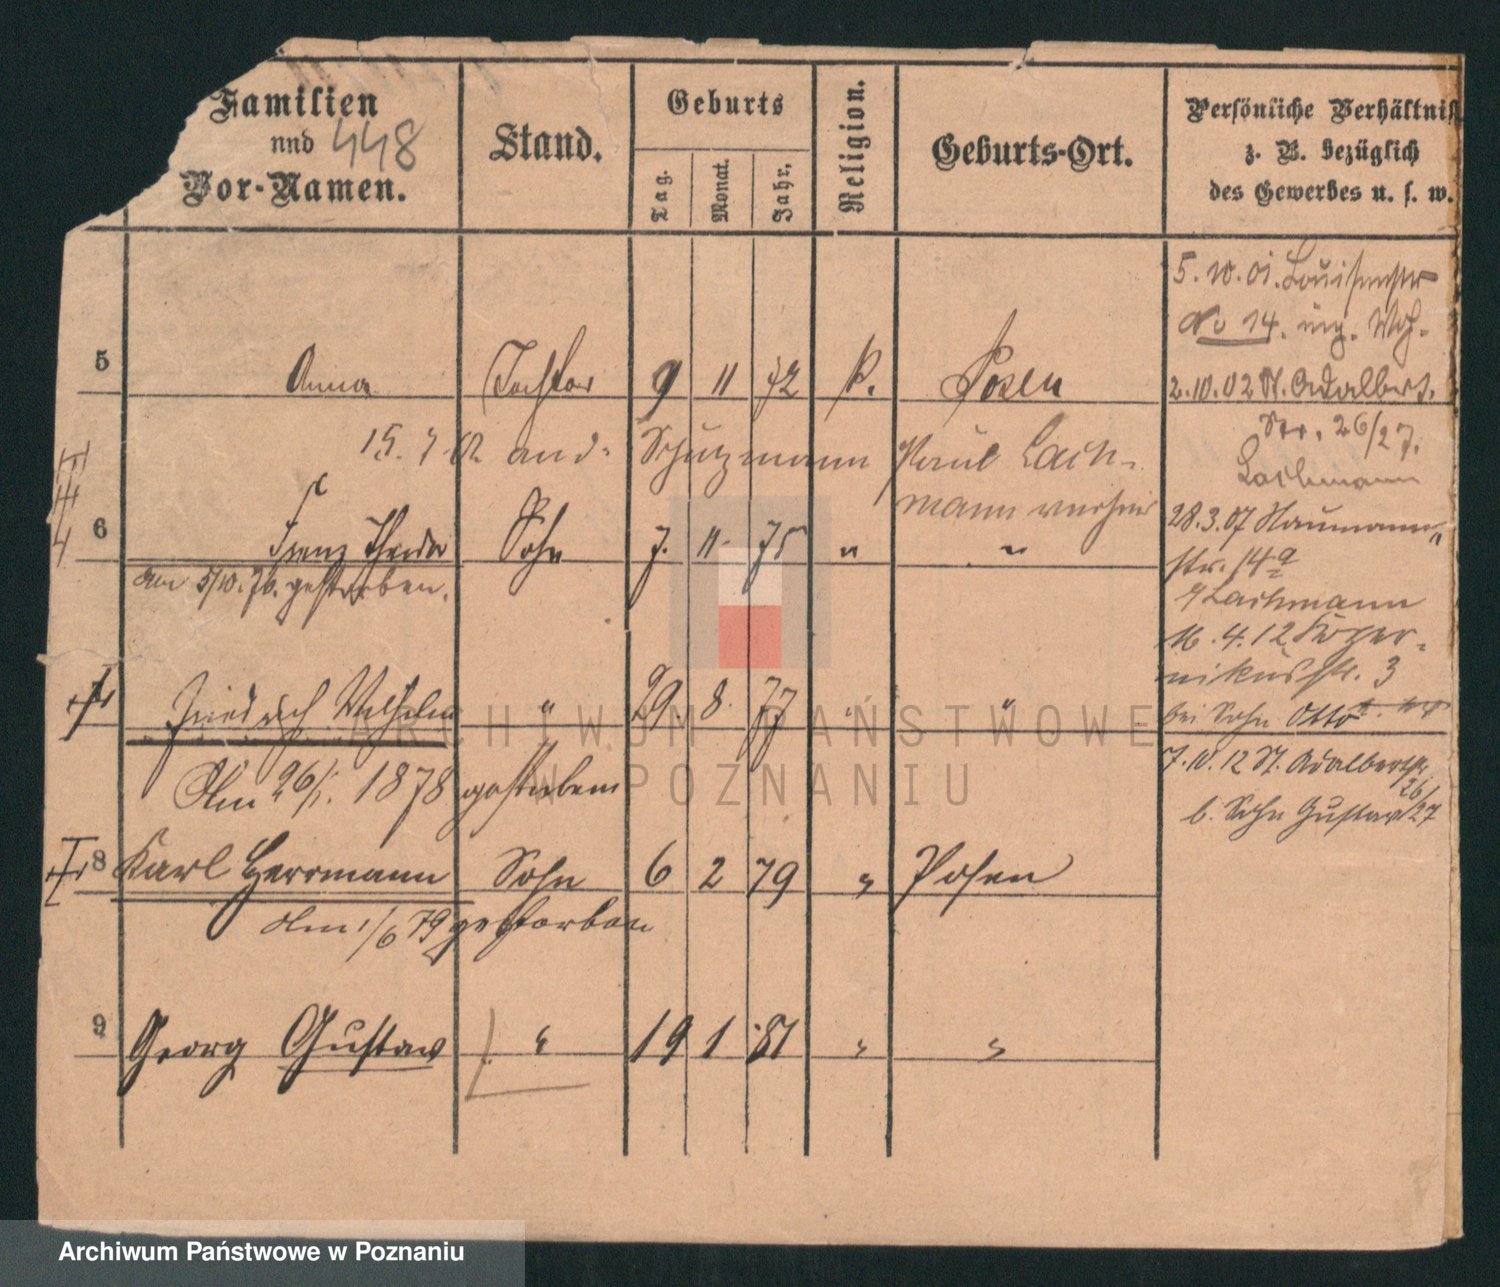 Familien
und 448
Vor-Namen.
Stand.
Geburts
Tag.
Monat.
Jahr.
Religion.
Geburts-Ort.
Persönliche Verhältniss
z. B. bezüglich
des Gewerbes u. s. w.
5 Anna Tochter 9 11 72 k. Posen
15. 7. 02 and. Schutzmann Paul Lach-
mann verheir
6 Franz Theodor Sohn 7. 11. 75 " "
Am 5/10. 76. gestorben.
Friedrich Wilhelm " 29. 8. 77 " "
Am 26/1. 1878 gestorben
8 Karl Herrmann Sohn 6 2 79 " Posen
Am 1/6 79 gestorben
9 Georg Gustav " 19 1 81 " "
5. 10. 01. Louisenstr
No 14.
2. 10. 02 St. Adalbert.
Str. 26/27.
Lachmann
28. 3. 07 Naumann-
str. 14a
Lachmann
16. 4. 12 Koper-
nikusstr. 3
bei Sohn Otto
7. 10. 12 St. Adalbertstr
26/27
b. Sohn Gustav
ARCHIWUM PAŃSTWOWE
W POZNANIU
Archiwum Państwowe w Poznaniu